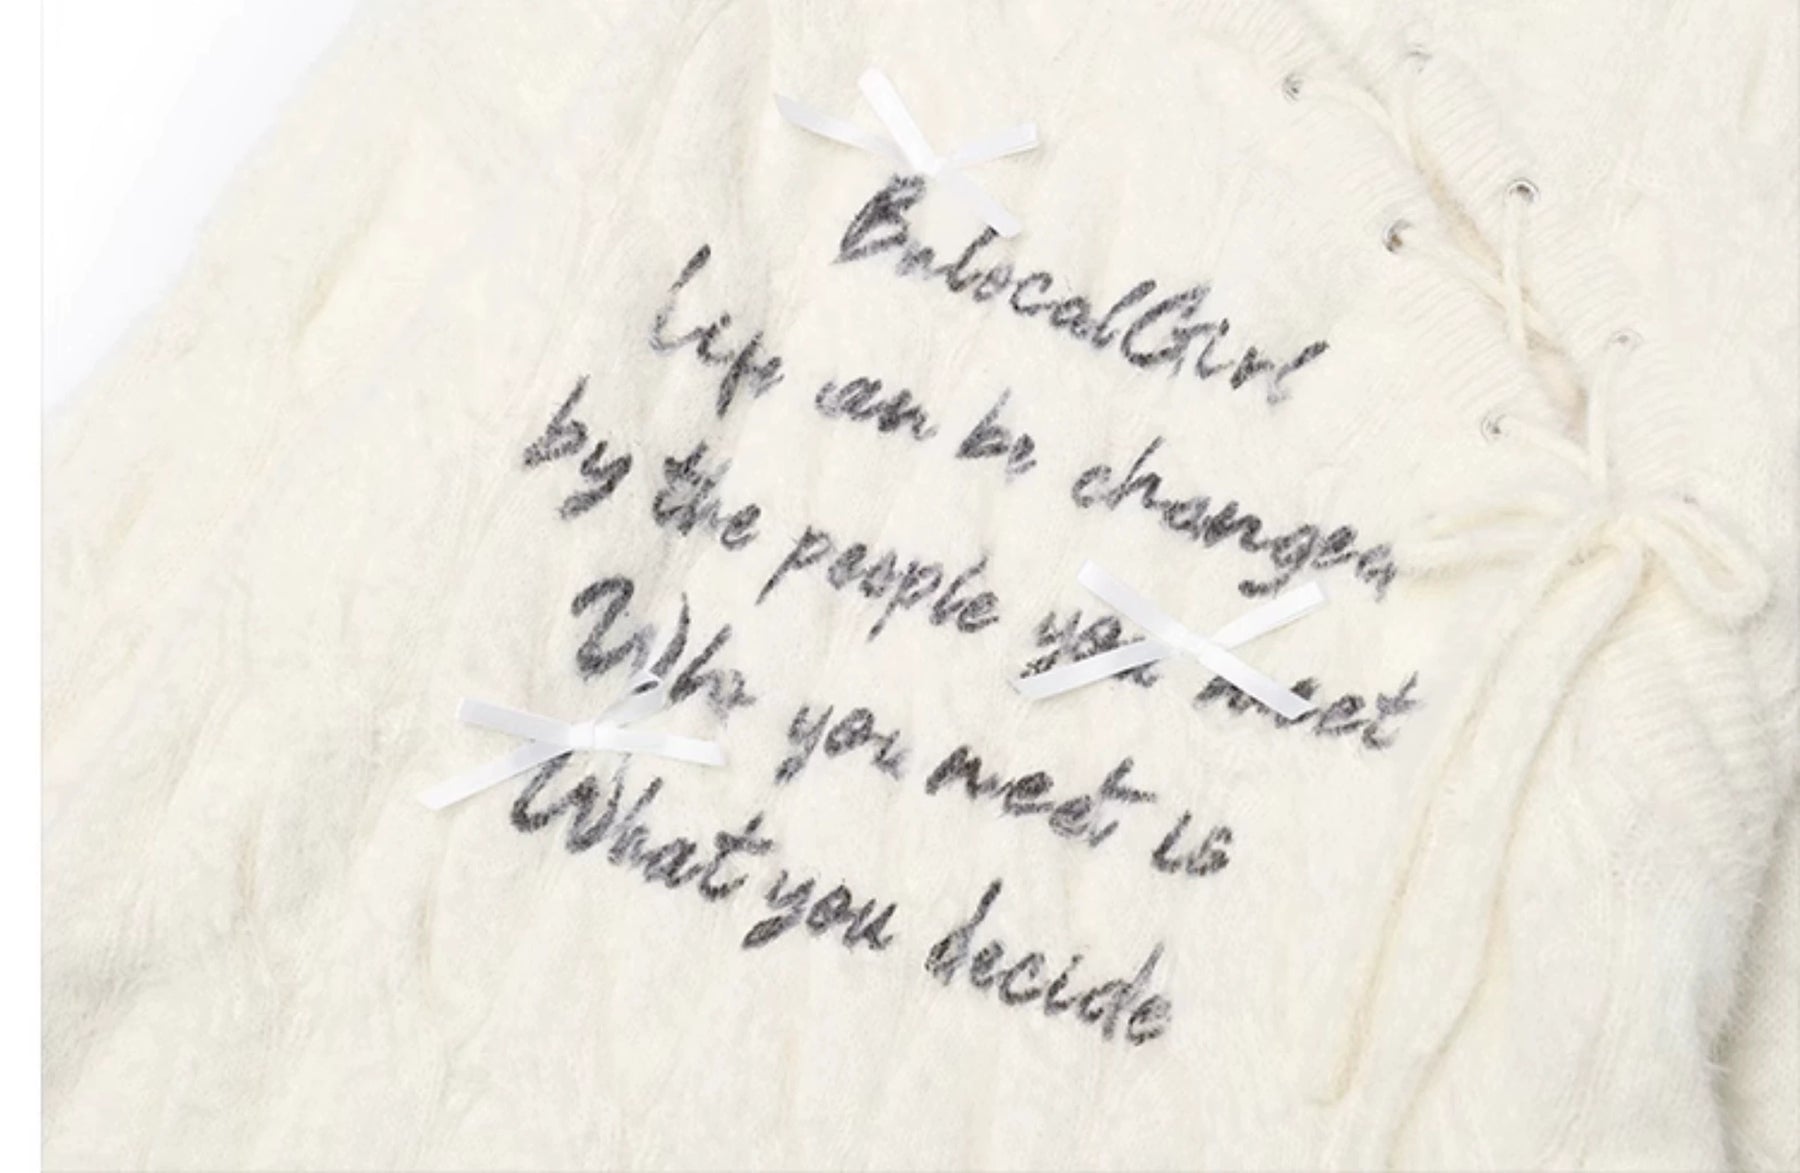 BnlocalGirl
Life can be changed
by the people you meet
Who you meet is
What you decide